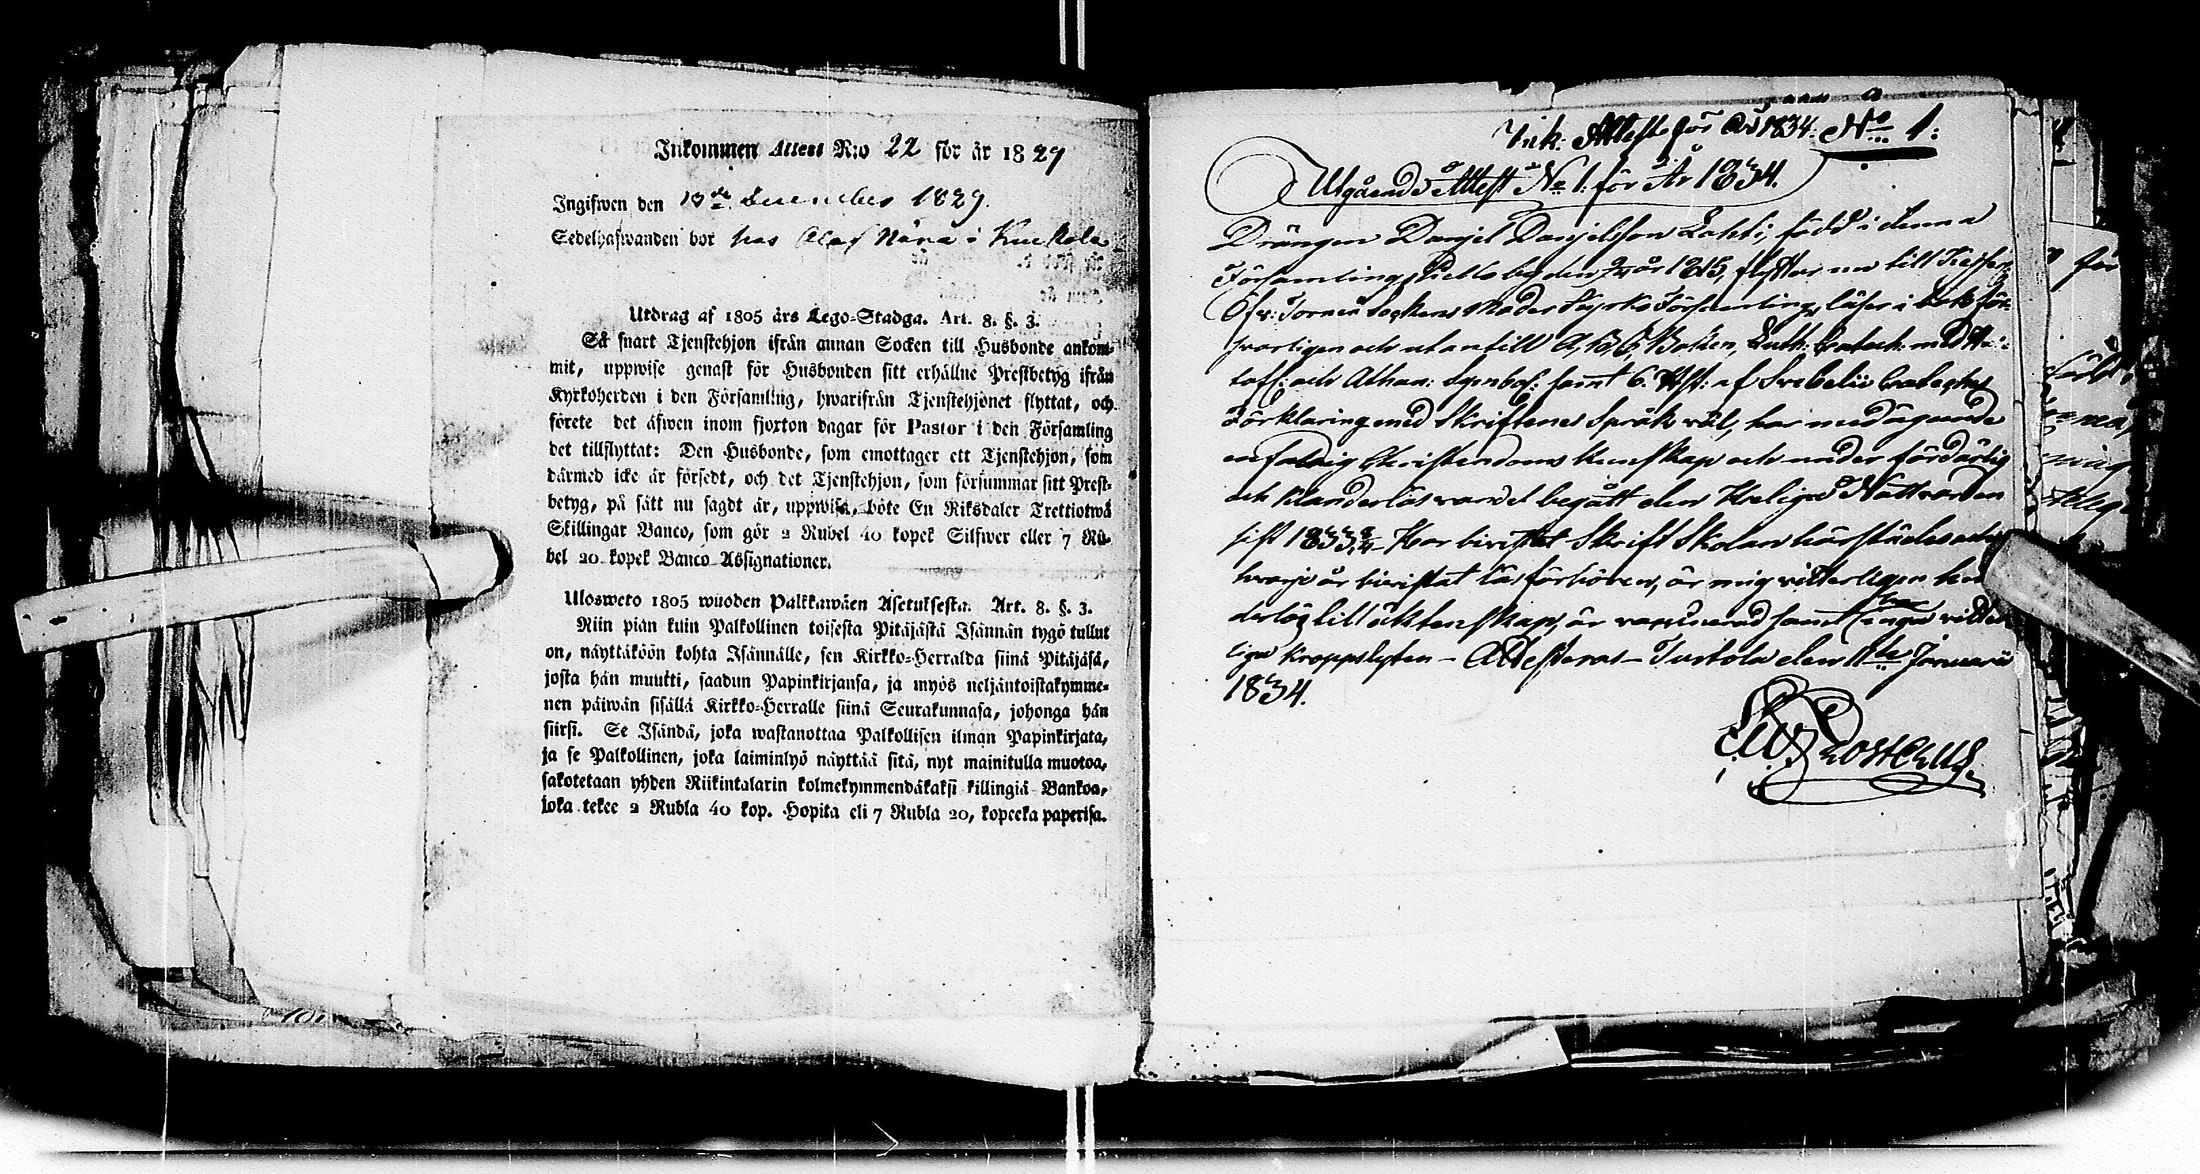 Inkommen Attest N:o 22 för år 1829
Ingifwen den 13de December 1829.
Sedelhafwanden bor hos Olof Nära i Kuckola
Utdrag af 1805 års Lego-Stadga. Art. 8. §. 3.
Så snart Tjenstehjon ifrån annan Socken till Husbonde ankom-
mit, uppwise genast för Husbonden sitt erhållne Prestbetyg ifrån
Kyrkoherden i den Församling, hwarifrån Tjenstehjonet flyttat, och
förete det äfwen inom fjorton dagar för Pastor i den Församling
det tillflyttat: Den Husbonde, som emottager ett Tjenstehjon, som
därmed icke är försedt, och det Tjenstehjon, som försummar sitt Prest-
betyg, på sätt nu sagdt är, uppwisa, böte En Riksdaler Trettiotwå
Skillingar Banco, som gör 2 Rubel 40 kopek Silfwer eller 7 Ru-
bel 20 kopek Banco Assignationer.
Ulosweto 1805 wuoden Palkkawäen Asetuksesta. Art. 8. §. 3.
Niin pian kuin Palkollinen toisesta Pitäjästä Isännän tygö tullut
on, näyttäköön kohta Isännälle, sen Kirkko-Herralda siinä Pitäjäsä,
josta hän muutti, saadun Papinkirjansa, ja myös neljäntoistakymme-
nen päiwän sisällä Kirkko-Herralle siinä Seurakunnasa, johonga hän
siirsi. Se Isändä, joka wastanottaa Palkollisen ilman Papinkirjata,
ja se Palkollinen, joka laiminlyö näyttää sitä, nyt mainitulla muotoa,
sakotetaan yhden Riikintalarin kolmekymmendäkaksi killingiä Bankoa,
joka tekee 2 Rubla 40 kop. Hopita eli 7 Rubla 20, kopeeka paperisa.
Ink: Attest för År 1834. No 1:
Utgående Attest No 1: för År 1834.
Drängen Danjel Danjelsson Lahti, född i denna
Församling by den år 1815, flyttar nu till
Öfv: Torneå Sockens Moder Kyrko Församling, läser i bok för-
svarligen och utantill A, B, C, Boken, Luth: Catech: med Hus-
tafl: och Athan: Symbol: samt 6. af Svebelii Cateches
Förklaring med Skriftenes Språk väl, har med ägande
enfaldig Christendoms kunskap och under
och klanderlös vandel begått den Heliga Nattvarden
sist 1833 Har bivistat Skrift Skolan härstädes och
hvarje år bivistat läsförhören, är mig vitterligen hin-
derlös till äktenskap, är vaccinerad samt inga vitter-
liga kroppslyten – Attesteras – Turtola den 11te Januarii
1834.